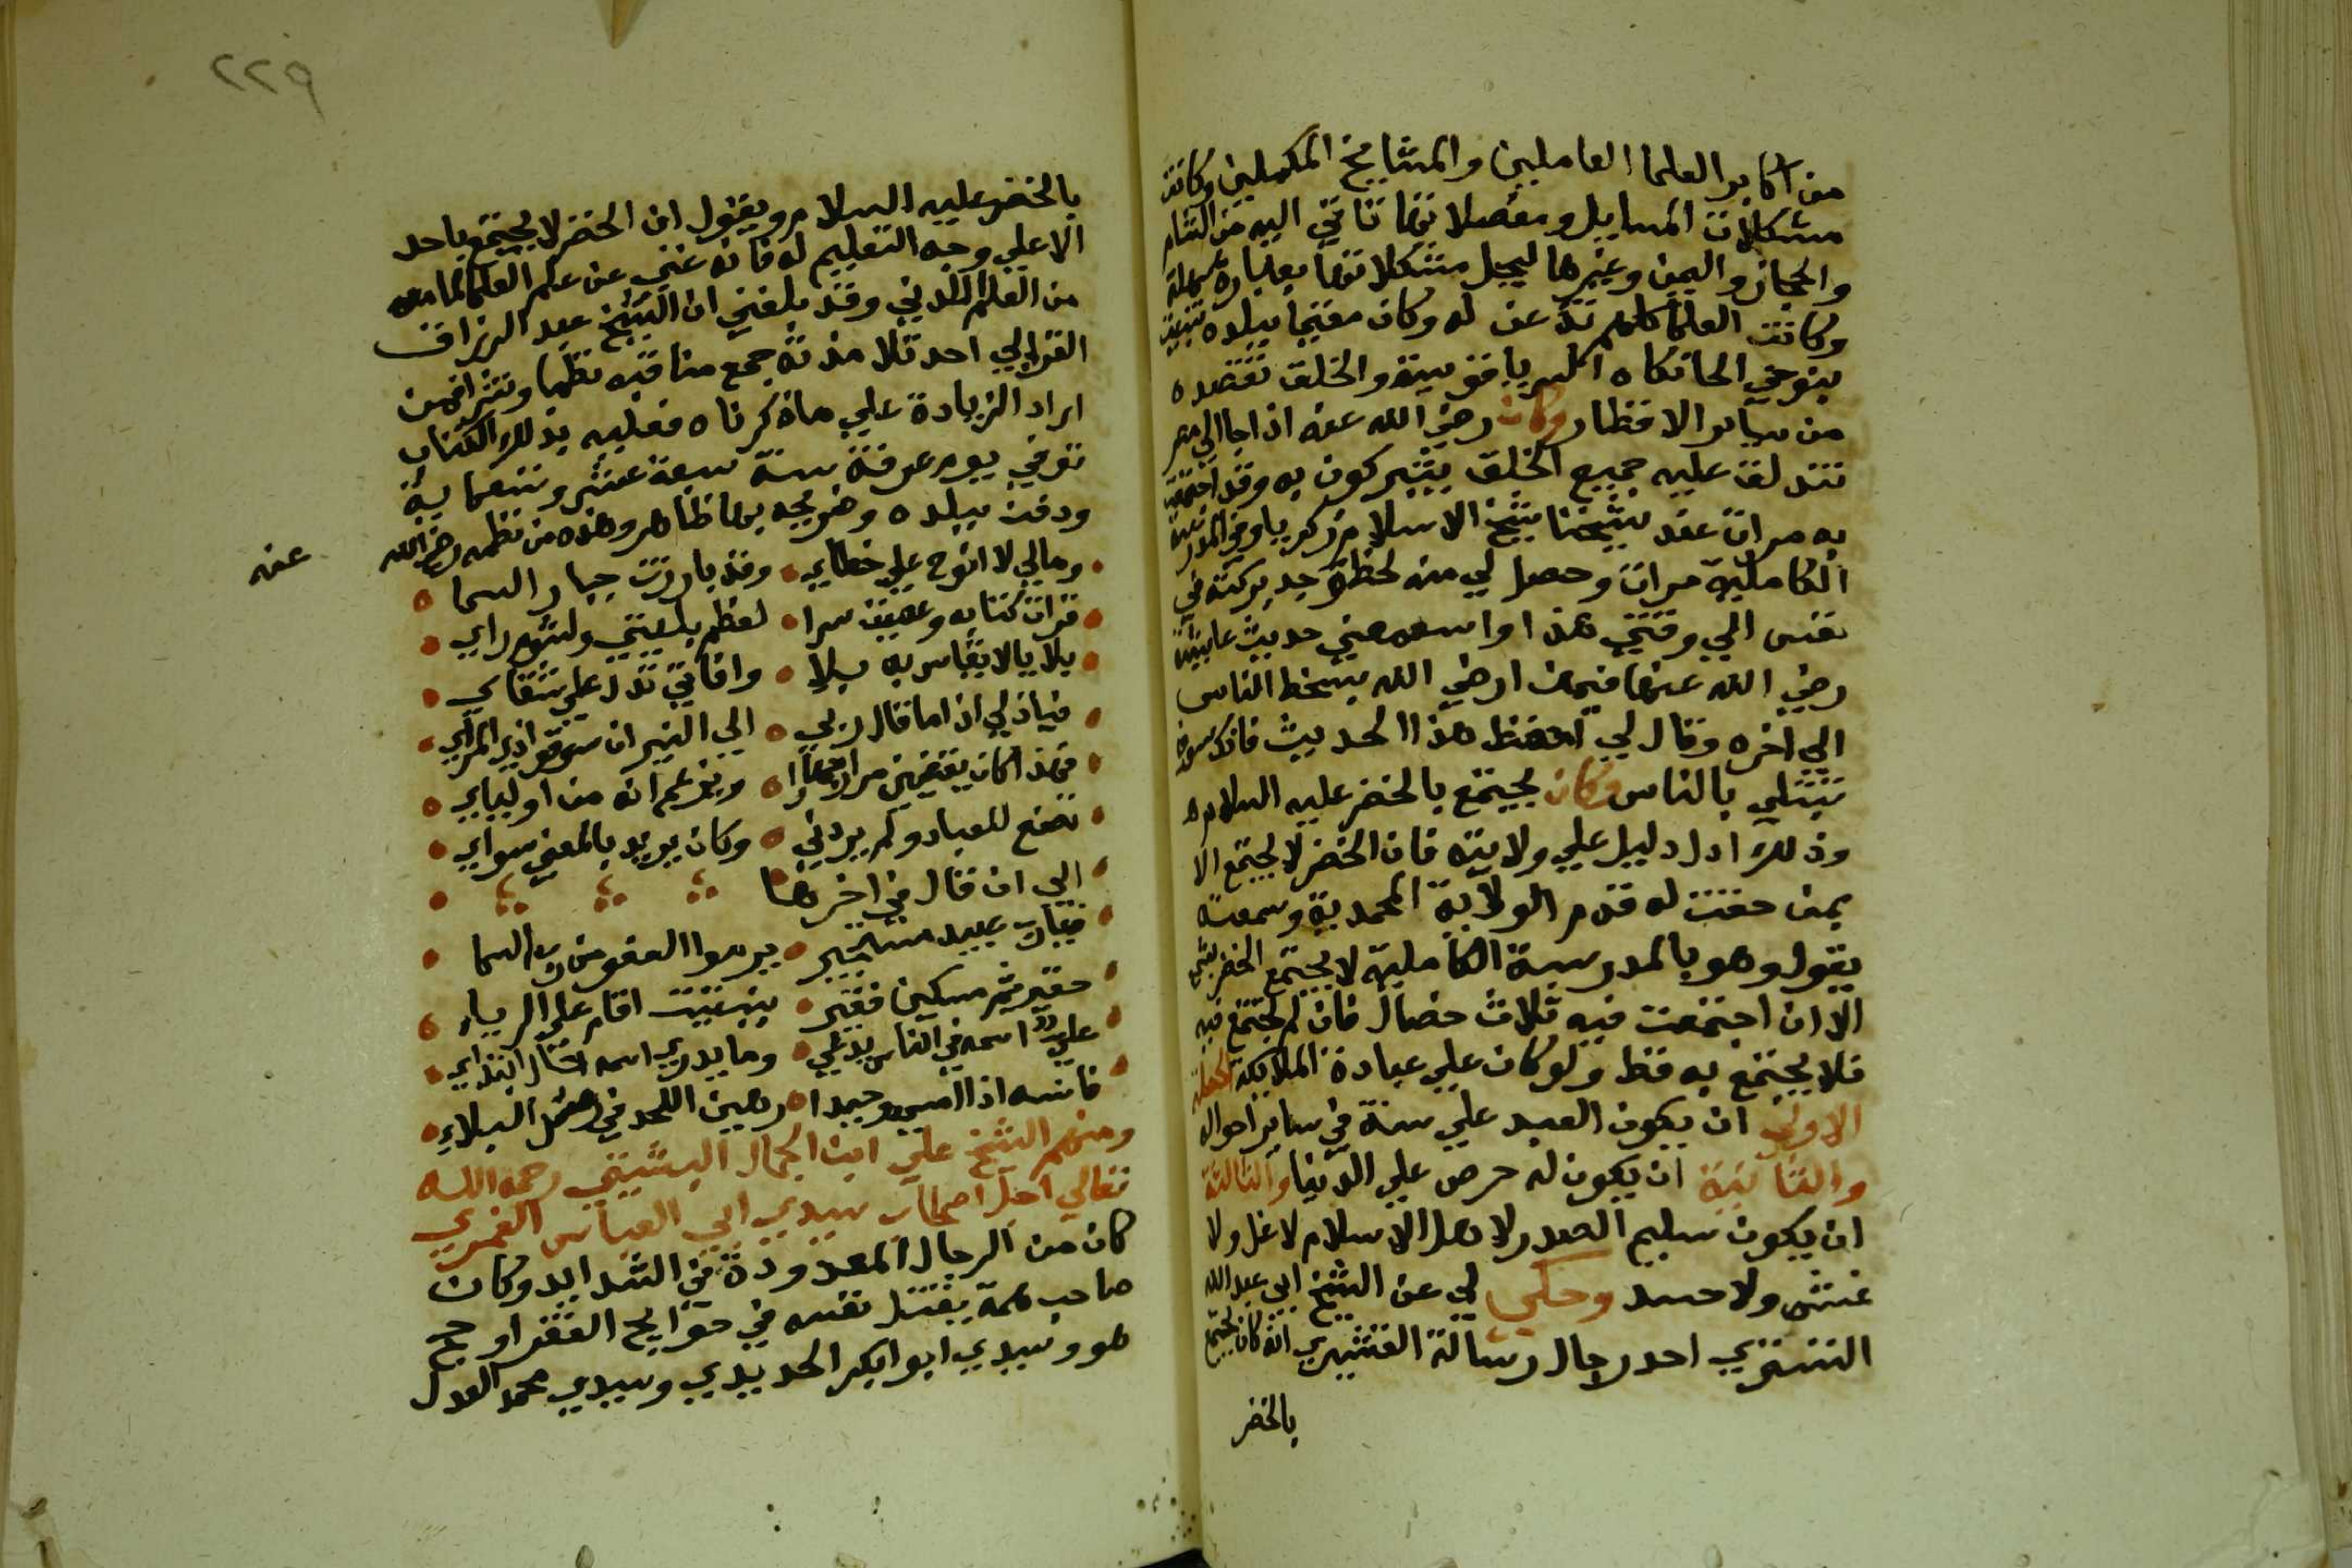 من اكابر العلما العاملين والمشايخ المكملين وكانت
مشكلات المسايل ومعضلاتها تاتي اليه من الشام
والحجاز واليمن وغيرها ليحل مشكلاتها بعبارة سهلة
وكانت العلما كلهم تذعن له وكان مقيما ببلده نبتيت
بنواحي الخانكاه
من ساير الاقطار وكان رضي الله عنه اذا جا الى مصر
تندلق عليه جميع الخلق يتبركون به وقد اجتمعت
به مرات عند شيخنا شيخ الاسلام زكريا وفي المدرسة
الكاملية مرات وحصل لي منه لحظ وجد بركته في
نفسي الي وقتي هذا واسمعني حديث عايشة
رضي الله عنها فيمن ارضي الله بسخط الناس
الي اخره وقال لي احفظ هذا الحديث فانك سوف
تبتلي بالناس وكان يجتمع بالخضر عليه السلام
وذلك ادل دليل علي ولايته فان الخضر لا يجتمع الا
بمن حقت له قدم الولاية المحمدية وسمعته
يقول وهو بالمدرسة الكاملية لا يجتمع الخضر بشخص
الا ان اجتمعت فيه ثلاث خصال فان لم تجتمع فيه
فلا يجتمع به قط ولو كان علي عبادة الملايكة الخصلة
الاولي ان يكون العبد علي سنة في ساير احواله
والثانية ان يكون له حرص علي الدنيا والثالثة
ان يكون سليم الصدر لاهل الاسلام لا غل ولا
غش ولا حسد وحكي لي عن الشيخ ابي عبد الله
التستري احد رجال رسالة القشيري انه كان يجتمع
بالخضر
٢٢٩
بالخضر عليه السلام ويقول ان الخضر لا يجتمع باحد
الا علي وجه التعليم له فانه غني عن علم العلما لما معه
من العلم اللدني وقد بلغني ان الشيخ عبد الرزاق
الترابي احد تلامذته جمع مناقبه نظما ونثرا فمن
اراد الزيادة علي ما ذكرناه فعليه بذلك الكتاب
توفي يوم عرفة سنة سبعة عشر وتسعماية
ودفن ببلده وضريحه بها ظاهر وهذه من نظمه رضي الله
عنه
ومالي لا انوح علي خطاي وقد بارزت جبار السما
قرات كتابه وعصيت سرا لعظم بليتي ولشوم راي
بلاي لا يقاس به بلا وافاتي تدل علي شقاي
فياذلي اذا ما قال ربي الي النيران سوقوا ذي المراي
فهذا كان يعصيني مرارا جهارا ويزعم انه من اوليايي
تصنع للعباد ولم يردني وكان يريد بالمعني سواي
الي ان قال في اخرها
يرجوا العفو من رب السما
حقير ثم مسكين فقير بنبتيت اقام علي الرياء
علي اسمه في الناس يدعي وما يدري اسمه حال النداي
فانسه اذا امسي وحيدا رهين اللحد في البلاء
ومنهم الشيخ علي ابن الجمال النبتيتي رحمه الله
تعالي احد اصحاب سيدي ابي العباس الغمري
كان من الرجال المعدودة في الشدايد وكان
صاحب همة يقتل نفسه في حوايج الفقرا وحج
هو وسيدي ابو ابكر الحديدي وسيدي محمد العدل